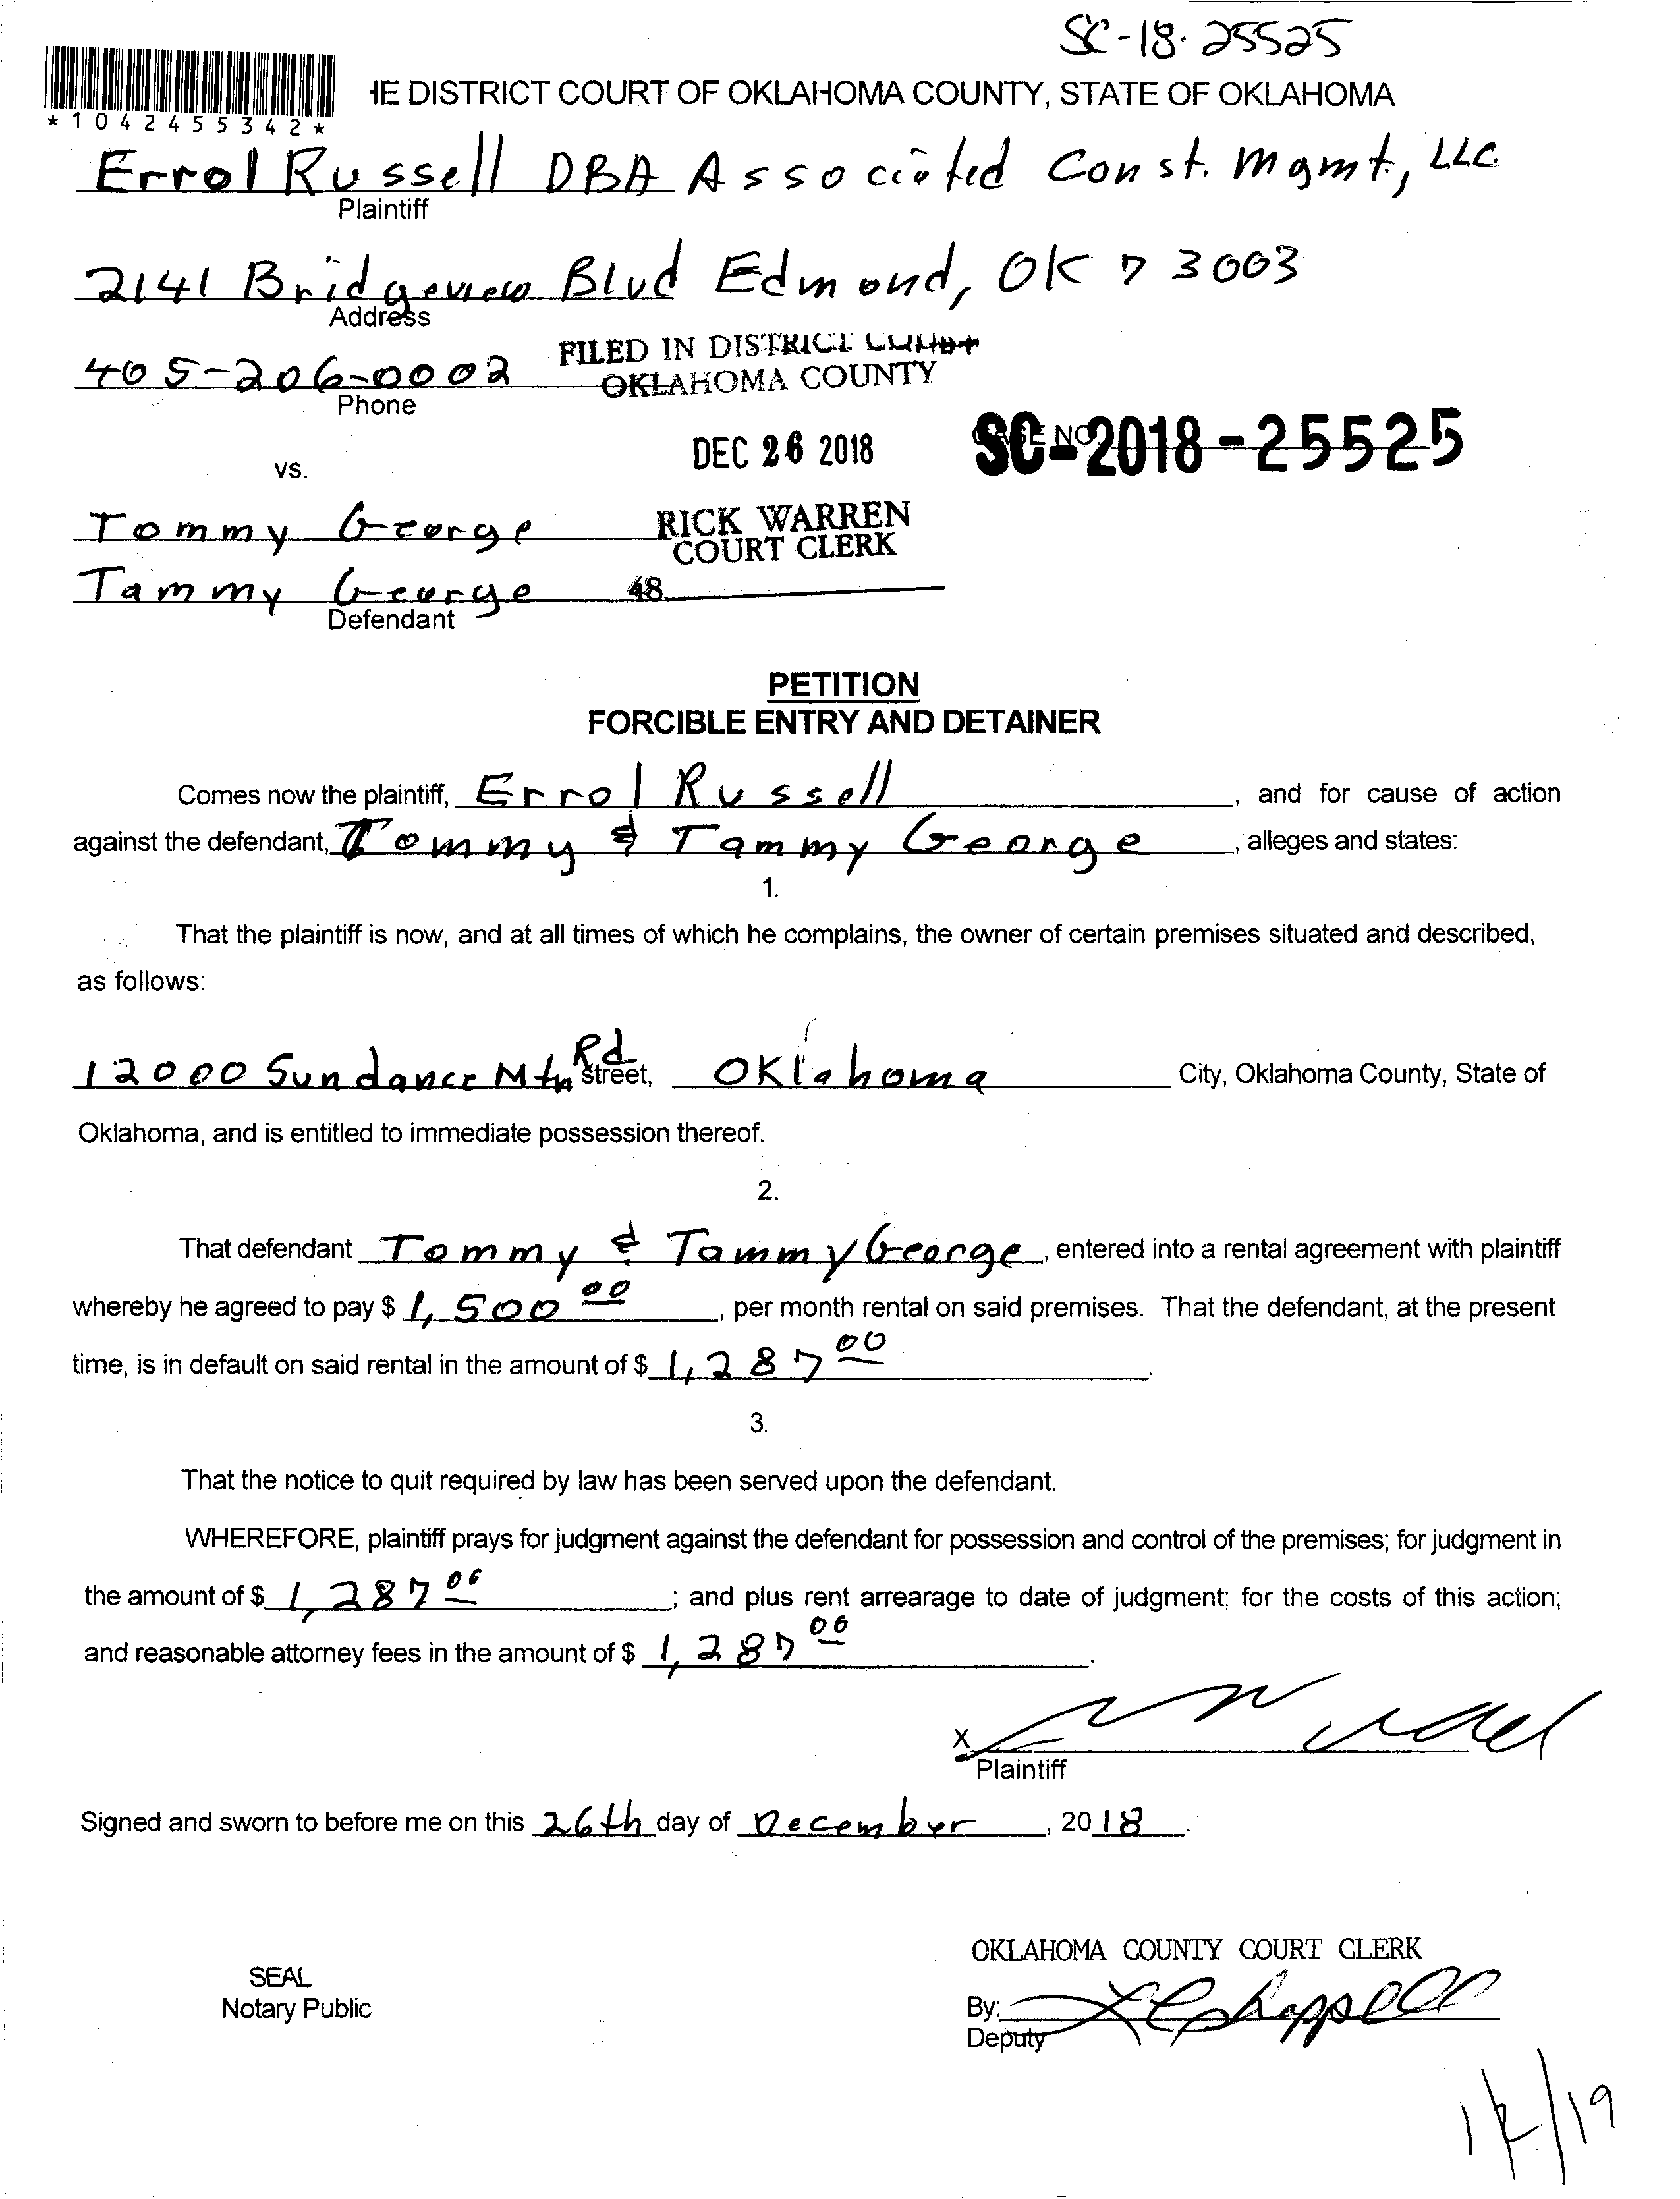 SC-18-25525
HE DISTRICT COURT OF OKLAHOMA COUNTY, STATE OF OKLAHOMA
*1042455342*
Errol Russell DBA Associated Const. Mgmt, LLC
Plaintiff
2141 Bridgeview Blvd Edmond, OK 73003
Address
405-206-0002
Phone
FILED IN DISTRICT COURT
OKLAHOMA COUNTY
DEC 26 2018
CASE NO.
SC-2018-25525
vs.
Tommy George
RICK WARREN
COURT CLERK
Tammy George
48
Defendant
PETITION
FORCIBLE ENTRY AND DETAINER
Comes now the plaintiff, Errol Russell, and for cause of action
against the defendant, Tommy & Tammy George, alleges and states:
1.
That the plaintiff is now, and at all times of which he complains, the owner of certain premises situated and described,
as follows:
12000 Sundance Mtn Rd Street, Oklahoma City, Oklahoma County, State of
Oklahoma, and is entitled to immediate possession thereof.
2.
That defendant Tommy & Tammy George, entered into a rental agreement with plaintiff
whereby he agreed to pay $ 1,500 00, per month rental on said premises. That the defendant, at the present
time, is in default on said rental in the amount of $ 1,287 00.
3.
That the notice to quit required by law has been served upon the defendant.
WHEREFORE, plaintiff prays for judgment against the defendant for possession and control of the premises; for judgment in
the amount of $ 1,287 00; and plus rent arrearage to date of judgment; for the costs of this action;
and reasonable attorney fees in the amount of $ 1,287 00.
X
Plaintiff
Signed and sworn to before me on this 26th day of December, 2018.
OKLAHOMA COUNTY COURT CLERK
SEAL
Notary Public
By: L Chappell
Deputy